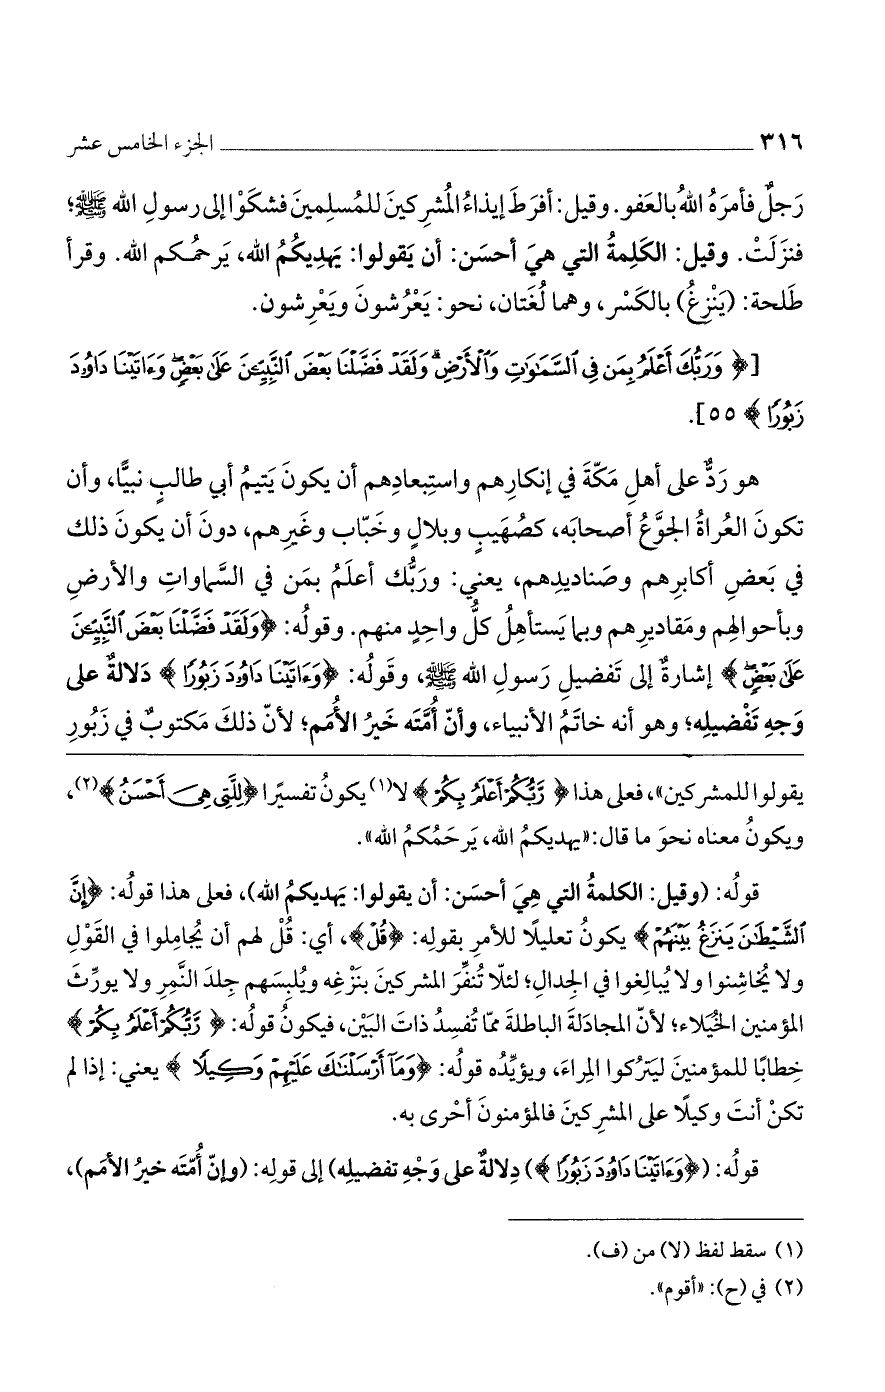 ٣١٦ الجزء الخامس عشر
رَجلٌ فأمرَهُ اللهُ بالعَفو. وقيل: أفرَطَ إيذاءُ المُشرِكينَ للمُسلِمينَ فشكَوْا إلى رسولِ الله ﷺ؛
فنزَلَتْ. وقيل: الكَلِمةُ التي هيَ أحسَن: أن يَقولوا: يَهدِيكُمُ الله، يَرحمُكم الله. وقرأ
طَلحة: (يَنْزِغُ) بالكَسْر، وهما لُغَتان، نحو: يَعْرُشونَ ويَعْرِشون.
[﴿ وَرَبُّكَ أَعْلَمُ بِمَن فِى ٱلسَّمَٰوَٰتِ وَٱلْأَرْضِ ۗ وَلَقَدْ فَضَّلْنَا بَعْضَ ٱلنَّبِيِّۦنَ عَلَىٰ بَعْضٍ ۖ وَءَاتَيْنَا دَاوُۥدَ
زَبُورًا ﴾ ٥٥].
هو رَدٌّ على أهلِ مَكّةَ في إنكارِهم واستِبعادِهم أن يكونَ يَتيمُ أبي طالبٍ نبيًّا، وأن
تكونَ العُراةُ الجوَّعُ أصحابَه، كصُهَيبٍ وبلالٍ وخَبّاب وغَيرِهم، دونَ أن يكونَ ذلك
في بَعضِ أكابرِهم وصَناديدِهم، يعني: وربُّك أعلَمُ بمَن في السَّماواتِ والأرضِ
وبأحوالِهم ومَقاديرِهم وبما يَستأهِلُ كلُّ واحِدٍ منهم. وقولُه: ﴿وَلَقَدْ فَضَّلْنَا بَعْضَ ٱلنَّبِيِّۦنَ
عَلَىٰ بَعْضٍ ۖ﴾ إشارةٌ إلى تَفضيلِ رَسولِ الله ﷺ، وقَولُه: ﴿وَءَاتَيْنَا دَاوُۥدَ زَبُورًا ﴾ دَلالةٌ على
وَجهِ تَفْضيلِه؛ وهو أنه خاتَمُ الأنبياء، وأنّ أُمَّتَه خَيرُ الأُمَم؛ لأنّ ذلكَ مَكتوبٌ في زَبُورِ
يقولوا للمشركين»، فعلى هذا ﴿ رَّبُّكُمْ أَعْلَمُ بِكُمْ ﴾ لا(١) يكونُ تفسيرًا ﴿لِلَّتِى هِىَ أَحْسَنُ ﴾(٢)،
ويكونُ معناه نحوَ ما قال: «يهديكمُ الله، يَرحَمُكمُ الله».
قولُه: (وقيل: الكلمةُ التي هِيَ أحسَن: أن يقولوا: يَهديكمُ الله)، فعلى هذا قولُه: ﴿إِنَّ
ٱلشَّيْطَٰنَ يَنزَغُ بَيْنَهُمْ ﴾ يكونُ تعليلًا للأمرِ بقولِه: ﴿قُلْ﴾، أي: قُلْ لهم أن يُجامِلوا في القَوْلِ
ولا يُخاشِنوا ولا يُبالِغوا في الجِدالِ؛ لئلّا تُنفِّرَ المشركينَ بنَزْغِه ويُلبِسَهم جِلدَ النَّمِر ولا يورِّثَ
المؤمنين الخُيَلاء؛ لأنّ المجادَلةَ الباطلةَ ممّا تُفسِدُ ذاتَ البَيْن، فيكونُ قولُه: ﴿ رَّبُّكُمْ أَعْلَمُ بِكُمْ ﴾
خِطابًا للمؤمنينَ ليَترُكوا المِراءَ، ويؤيِّدُه قولُه: ﴿وَمَآ أَرْسَلْنَٰكَ عَلَيْهِمْ وَكِيلًا ﴾ يعني: إذا لم
تكنْ أنتَ وكيلًا على المشركينَ فالمؤمنونَ أحْرى به.
قولُه: (﴿وَءَاتَيْنَا دَاوُۥدَ زَبُورًا ﴾) دِلالةٌ على وَجْهِ تفضيلِه) إلى قولِه: (وإنّ أُمّتَه خيرُ الأمَم)،
(١) سقط لفظ (لا) من (ف).
(٢) في (ح): «أقوم».